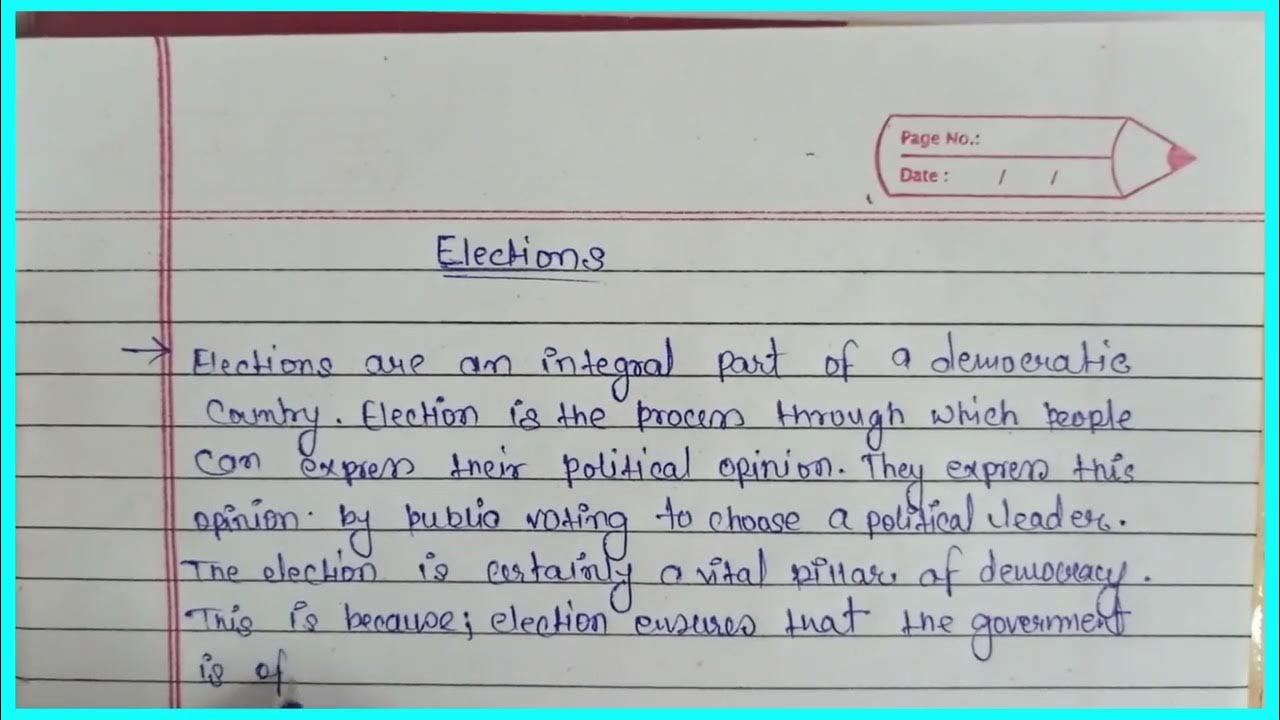 Page No.:
Date : / /
Elections
→ Elections are an integral part of a democratic
Country. Election is the process through which people
can express their political opinion. They express this
opinion. by public voting to choose a political leader.
The election is certainly a vital pillar of democracy.
This is because; election ensures that the government
is of